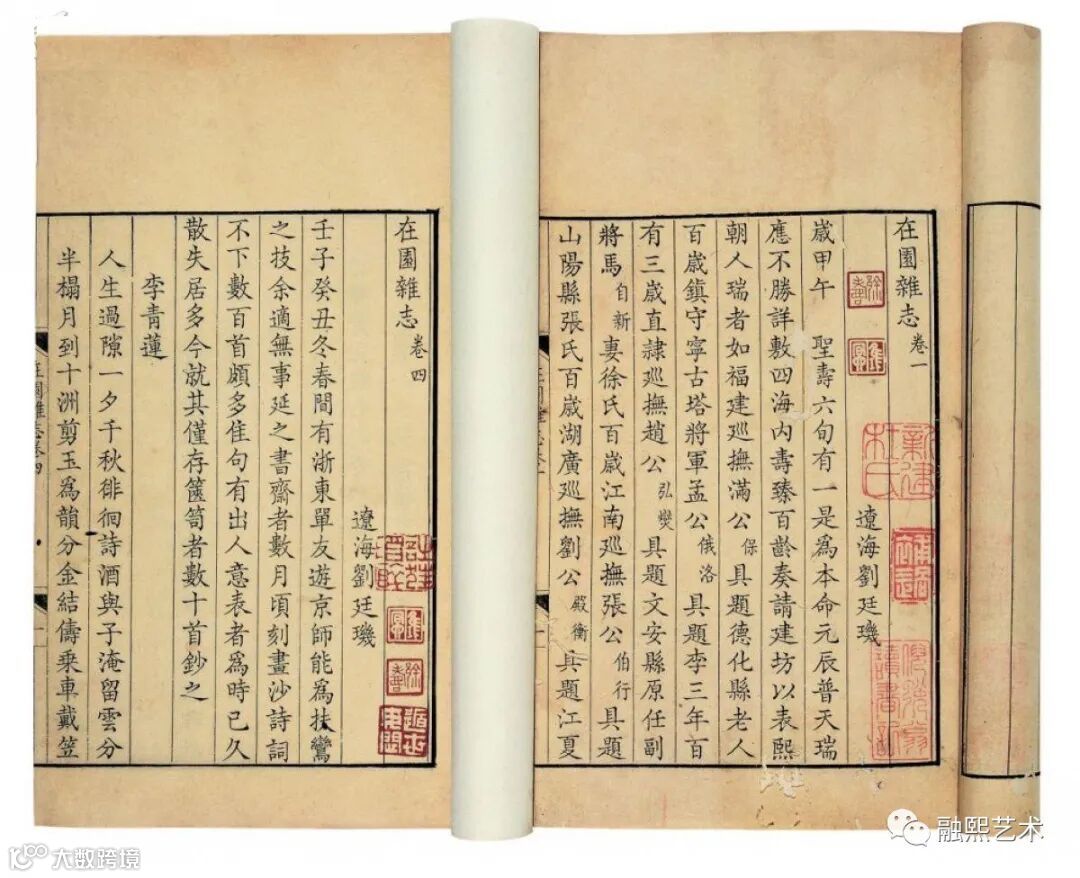 在園雜志 卷一
遼海劉廷璣
歲甲午 聖壽六旬有一是爲本命元辰普天瑞
應不勝詳敷四海內壽臻百齡奏請建坊以表熙
朝人瑞者如福建巡撫滿公 保 具題德化縣老人
百歲鎮守寧古塔將軍孟公 俄洛 具題李三年百
有三歲直隸巡撫趙公 弘燮 具題文安縣原任副
將馬 自新 妻徐氏百歲江南巡撫張公 伯行 具題
山陽縣張氏百歲湖廣巡撫劉公 殿衡 具題江夏
在園雜志 卷四
遼海劉廷璣
壬子癸丑冬春間有浙東單友遊京師能爲扶鸞
之技余適無事延之書齋者數月頃刻畫沙詩詞
不下數百首頗多佳句有出人意表者爲時已久
散失居多今就其僅存篋笥者數十首鈔之
李青蓮
人生過隙一夕千秋徘徊詩酒與子淹留雲分
半榻月到十洲剪玉爲韻分金結儔乘車戴笠
在園雜志卷四
融熙艺术
大数跨境